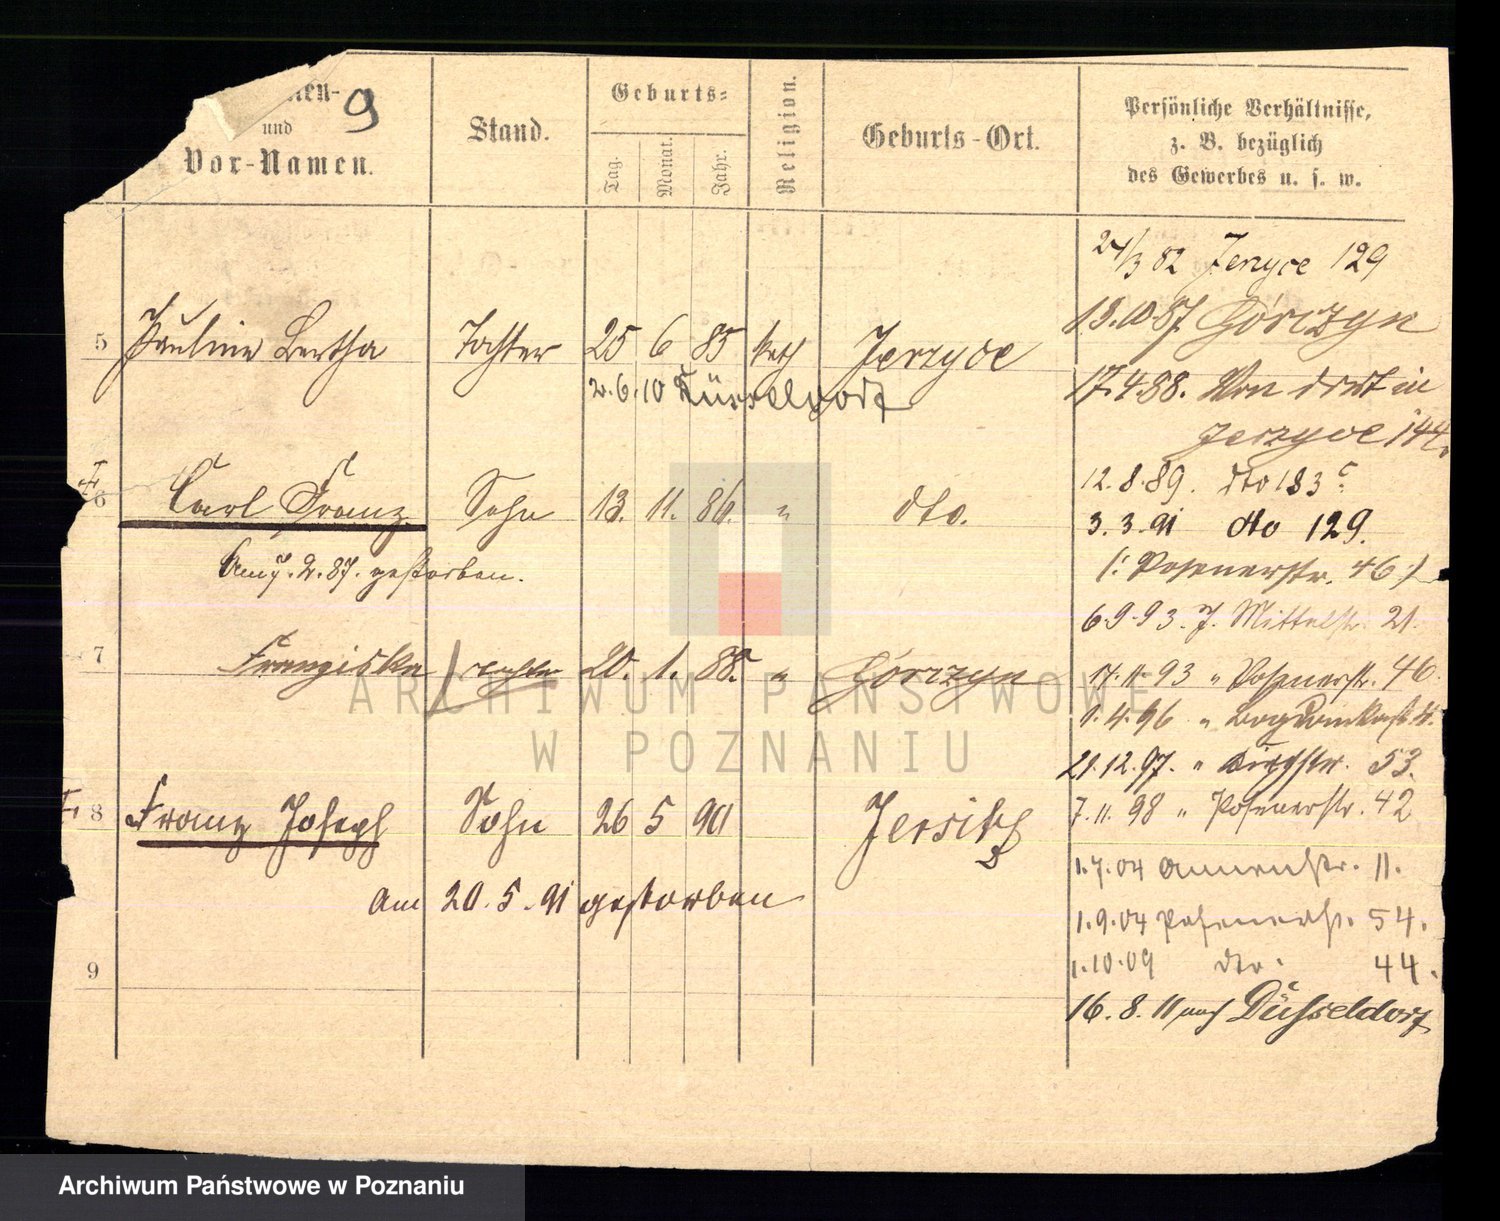 9
und
Vor-Namen.
Stand.
Geburts-
Tag.
Monat.
Jahr.
Religion.
Geburts-Ort.
Persönliche Verhältnisse,
z. B. bezüglich
des Gewerbes u. s. w.
24/3 82 Jerzyce 129
13.10.87. Górczyn
5 Pauline Bertha Tochter 25 6 85 kath Jerzyce
2.6.10 Düsseldorf
17.4.88. Von dort in
Jerzyce 144.
6 Carl Franz Sohn 13. 11. 86. " dto.
Am 7.2.87. gestorben.
12.8.89. dto 183c
3.3.91 dto 129.
(: Posenerstr. 46 :)
6.9.93. J. Mittelstr. 21.
7 Franziska Tochter 20. 1. 88. " Górczyn
17.11.93 " Posenerstr. 46.
1.4.96 " 4.
21.12.97. " 53.
8 Franz Joseph Sohn 26 5 90 Jersitz
7.11.98 " Posenerstr. 42
Am 20.5.91 gestorben
1.7.04 Annenstr. 11.
1.9.04 Posenerstr. 54.
9
1.10.09 dto. 44.
16.8.11 nach Düsseldorf
ARCHIWUM PAŃSTWOWE
W POZNANIU
Archiwum Państwowe w Poznaniu